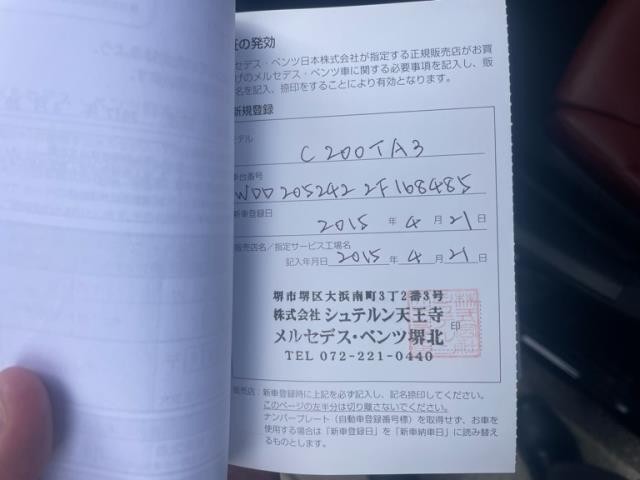 証の発効
セデス・ベンツ日本株式会社が指定する正規販売店がお買
げのメルセデス・ベンツ車に関する必要事項を記入し、販
名を記入、捺印をすることにより有効となります。
新規登録
デル
C 200TA3
車台番号
WDD 205242 2F168485
新車登録日
2015 年 4 月 21 日
販売店名／指定サービス工場名
記入年月日 2015 年 4 月 21 日
堺市堺区大浜南町3丁2番3号
株式会社 シュテルン天王寺
メルセデス・ベンツ堺北
印
TEL 072-221-0440
販売店：新車登録時に上記を必ず記入し、記名捺印してください。
このページの左半分は切り離さないでください。
ナンバープレート（自動車登録番号標）を取得せず、お車を
使用する場合は「新車登録日」を「新車納車日」に読み替え
るものとします。